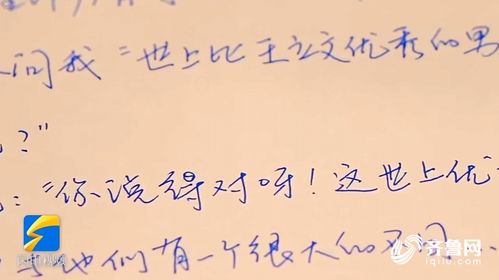 问我"世上比王立文优秀的男
?"
："你说得对呀！这世上优
与他们有一个很大的不同
闪电视频
齐鲁网
iqilu.com